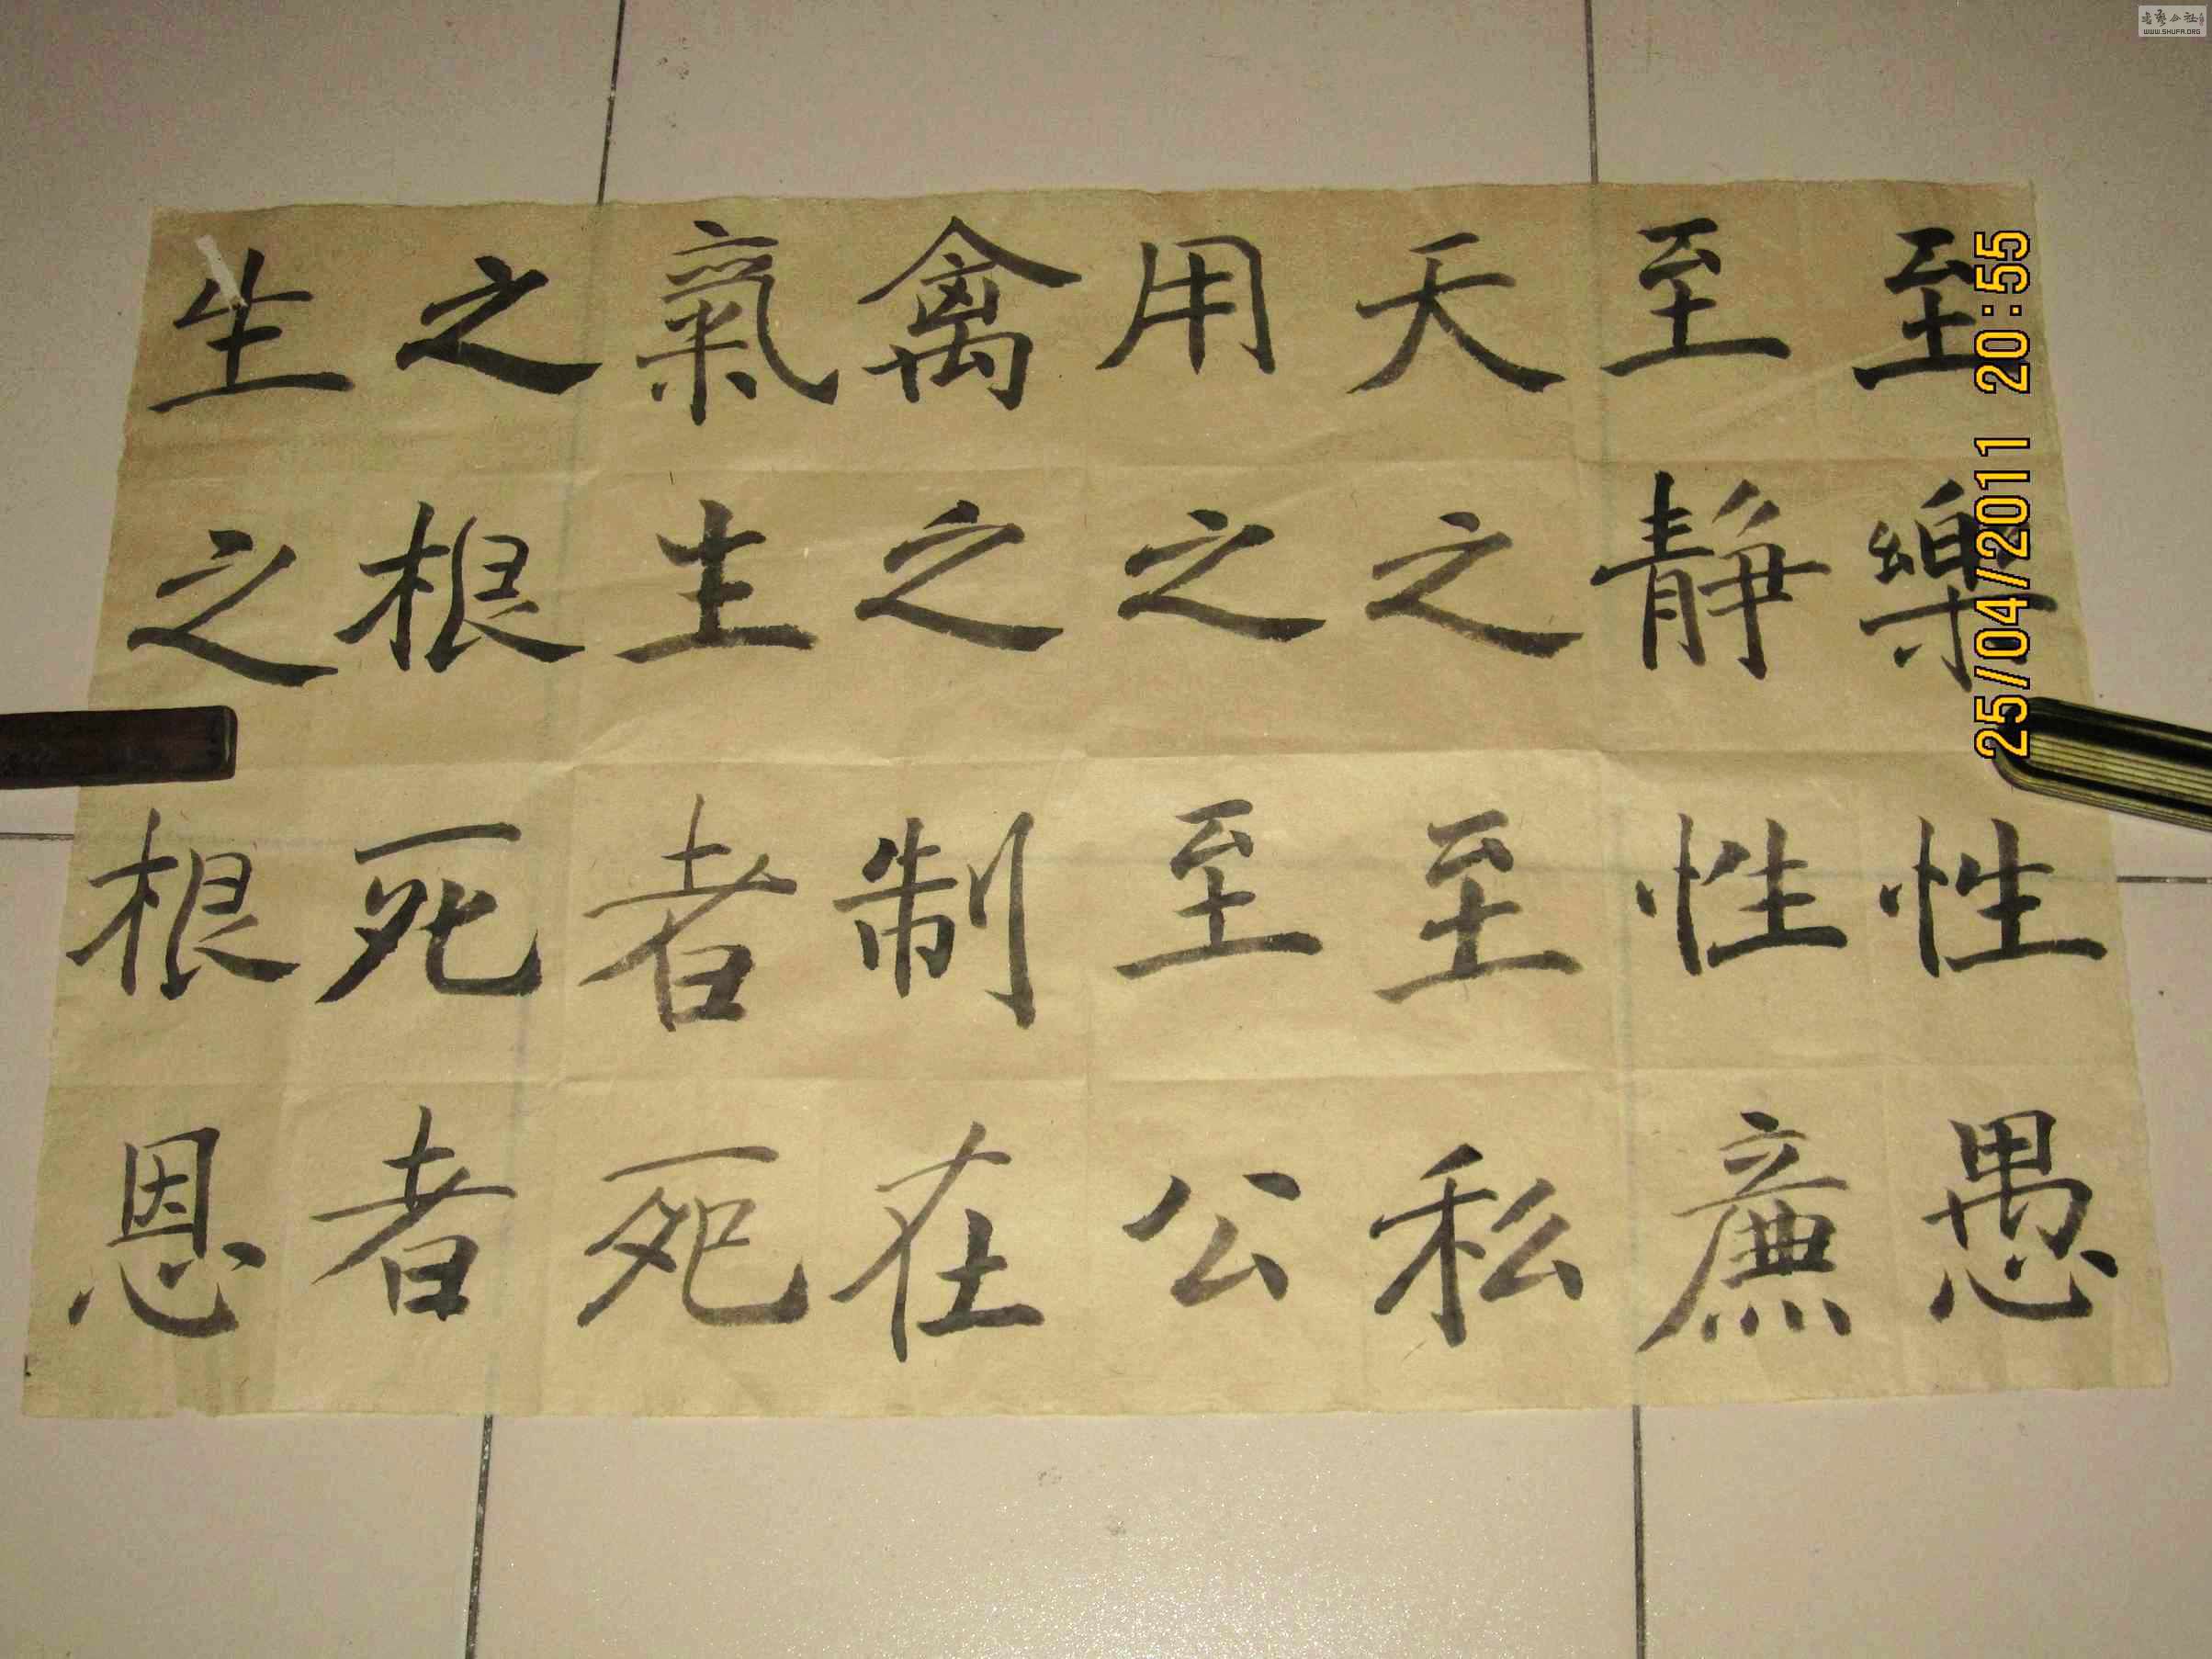 至樂性愚
至靜性廉
天之至私
用之至公
禽之制在
氣生者死
之根死者
生之根恩
25/04/2011 20:55
WWW.SHUFA.ORG